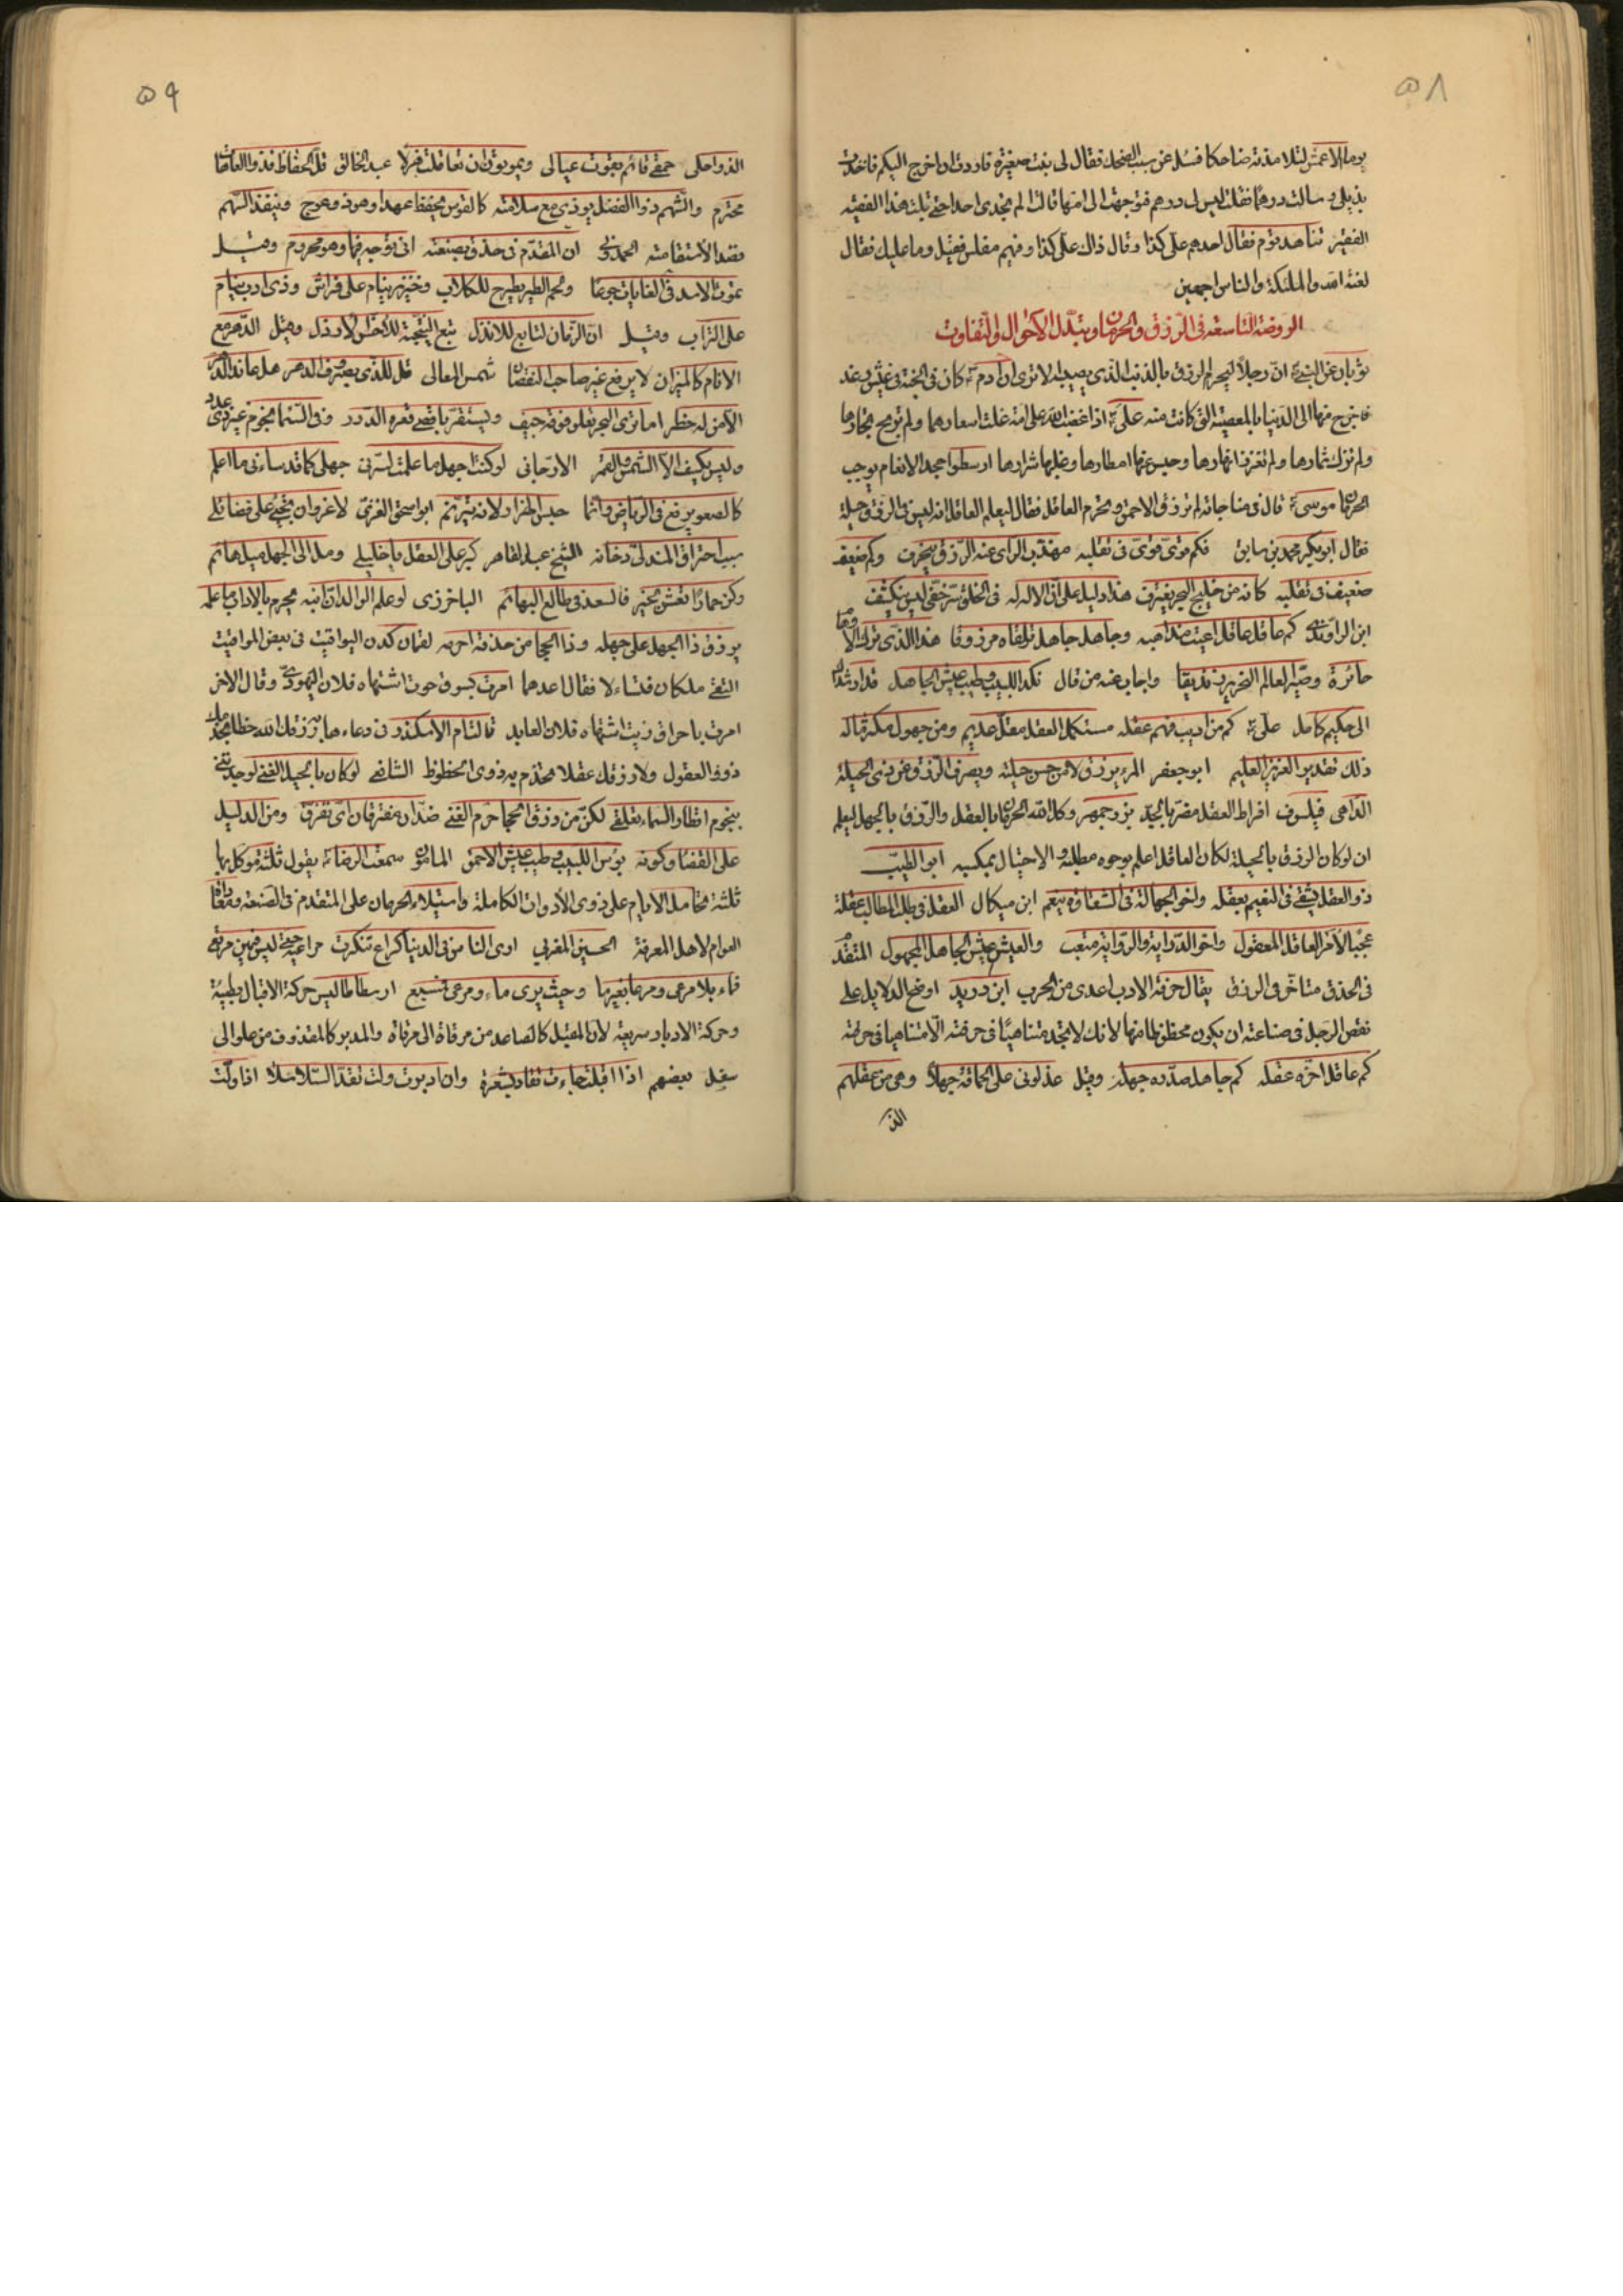 ٥٨
يوما الاعمش لتلامذته ضاحكا فسئل عن سبب الضحك فقال لى بنت صغيرة فاردت ان اخرج اليكم فاخذت
بذيلى وسالت درهما فقلت ليس لى درهم فتوجهت الى امها قالت الم تجدى احدا حتى بليت هذا الفقيه
الفقير تناهد قوم فقال احدهم على كذا وقال ذاك على كذا وفيهم مفلس فقيل وما عليك فقال
لعنة الله والملئكة والناس اجمعين
الروضة التاسعة فى الرزق والحرمان وتبدل الاحوال والتفاوت
ثوبان عن النبى ان رجلا ليحرم الرزق بالذنب الذى يصيبه الا ترى ان آدم كان فى الجنة فى عيش رغد
فاخرج منها الى الدنيا بالمعصية التى كانت منه على اذا غضب الله على امة غلت اسعارها ولم تربح تجارها
ولم تزك ثمارها ولم تغزر انهارها وحبس عنها امطارها وغلبها شرارها ارسطو مجد الانعام يوجب
الحرمان موسى قال فى مناجاته لم ترزق الاحمق وتحرم العاقل فقال ليعلم العاقل انه ليس فى الرزق حيلة
فقال ابو بكير محمد بن سابق فكم قوى قوى فى تقلبه مهذب الراى عنه الرزق ينحرف وكم ضعيف
ضعيف فى تقلبه كانه من خليج البحر يغترف هذا دليل على ان الاله له فى الخلق سر خفى ليس ينكشف
ابن الراوندى كم عاقل عاقل اعيت مذاهبه وجاهل جاهل تلقاه مرزوقا هذا الذى ترك الاوهام
حائرة وصير العالم النحرير زنديقا واجاب عنه من قال نكد اللبيب وطيب عيش الجاهل قد ارشداك
الى حكيم كامل على كم من اديب فهم عقله مستكمل العقل مقل عديم ومن جهول مكثر ماله
ذلك تقدير العزيز العليم ابو جعفر المرء يرزق لا من حسن حيلته ويصرف الرزق عن ذى الحيلة
الداهى فيلسوف افراط العقل مضر بالجد بزرجمهر وكل الله الحرمان بالعقل والرزق بالجهل ليعلم
ان لو كان الرزق بالحيلة لكان العاقل اعلم بوجوه مطلبه والاحتيال بمكسبه ابو الطيب
ذو العقل يشقى فى النعيم بعقله واخو الجهالة فى الشقاوة ينعم ابن ميكال العقل فى طلب المطالب عقلة
عجبا لامر العاقل المعقول واخو الدراية والرواية متعب والعيش عيش الجاهل المجهول المتقدم
فى الحذق متاخر فى الرزق يقال حرفة الادب اعدى من الجرب ابن دريد اوضح الدلايل على
نقص الرجل فى صناعته ان يكون محظوظا منها لانك لا تجد متناهيا فى حرفته الا متناهيا فى حرفته
كم عاقل اخره عقله كم جاهل صدره جهله وقيل عذلونى على الحماقة جهلا وهى من عقلهم
الذ
٥٩
الذ واحلى حمقى قائم بقوت عيالى ويموتون ان تعاقلت هزلا عبد الخالق قل الحفاظ فذو العاهات
محترم والشهم ذو الفضل يوذى مع سلامته كالقوس يحفظ عهدا وهو ذو عوج وينبذ السهم
فقد الاستقامته ان المقدم فى حذق بصنعته انى توجه فيها وهو محروم وقيل
تموت الاسد فى الغابات جوعا ولحم الطير يطرح للكلاب وخنزير ينام على فراش وذى ادب ينام
على التراب وقيل ان الزمان لتابع للانذل تبع النتيجة للاخس الارذل وقيل الدهر مع
الانام كالميزان لا يرفع غير صاحب النقصان شمس المعالى قل للذى بصروف الدهر هل عاند الدهر
الا من له خطر اما ترى البحر تعلو فوقه جيف وليستقر باقصى قعره الدرر وفى السماء نجوم غير ذى عدد
وليس يكسف الا الشمس والقمر الارجانى لو كنت اجهل ما علمت لسرنى جهلى كما قد ساءنى ما اعلم
كالصعو يرتع فى الرياض وانما حبس الهزار ولانه يترنم ابو اسحق الغزى لا غرو ان تجنى على فضائلى
سبب احتراق المندلى دخانه الشيخ عبد القاهر كبر على العقل يا خليلى ومل الى الجهل ميل هائم
وكن حمارا تعش بخير فالسعد فى طالع البهائم الباخرزى لو علم الوالدان ابنه يحرم بالاداب ما علمه
يرزق ذا الجهل على جهله وذا الحجا من حذقه احرمه لقمان كدن اليواقيت فى بعض المواقيت
التقى ملكان فتساءلا فقال احدهما امرت بسوق حوت اشتهاه فلان اليهودى وقال الاخر
امرت باحراق زيت اشتهاه فلان العابد قالت ام الاسكندر فى دعاءها رزقك الله حظا يخدمك
ذوو العقول ولا رزقك عقلا تخدم به ذوى الحظوظ الشافعى لو كان بالحيل الغنى لوجدتنى
بنجوم اقطار السماء تعلقى لكن من رزق الحجا حرم الغنى ضدان مفترقان اى تفرق ومن الدليل
على القضا وكونه بؤس اللبيب وطيب عيش الاحمق المامون سمعت الرضا يقول ثلثة موكل بها
ثلثة تحامل الايام على ذوى الادوات الكاملة واستيلاء الحرمان على المتقدم فى الصنعة ومعاداة
العوام لاهل المعرفة الحسين المغربى ارى الناس فى الدنيا كراع تنكرت مراعيه حتى ليس فيهن مرتع
فماء بلا مرعى ومرعا بغير ما وحيث يرى ماء ومرعى فمسبع ارسطاطاليس حركة الاقبال بطيئة
وحركة الادبار سريعة لان المقبل كالصاعد من مرقاة الى مرقاة والمدبر كالمقذوف من علو الى
سفل بعضهم اذا اقبلت جاءت تقاد بشعرة وان ادبرت ولت تقد السلاسلا